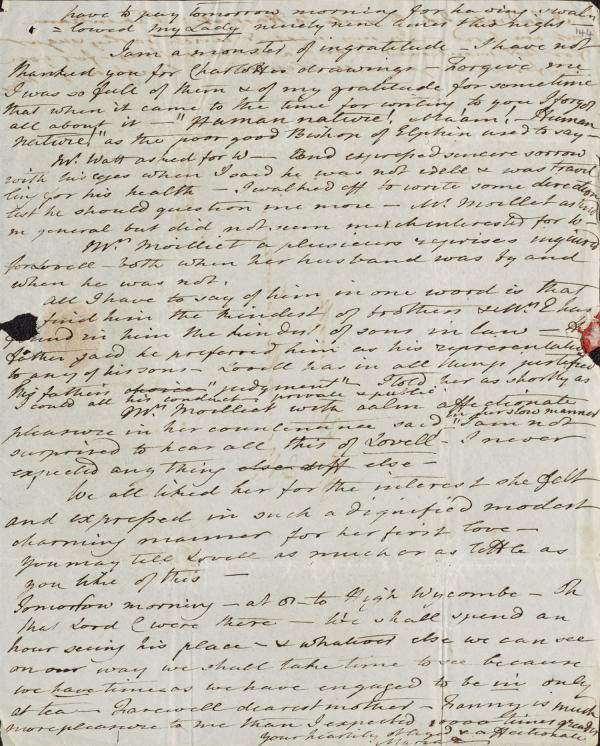 have to pay tomorrow morning for having swal
= lowed my Lady ninety nine times this night
144
I am a monster of ingratitude - I have not
thanked you for Charlottes drawings - Forgive me
I was so full of them & of my gratitude for sometime
that when it came to the time for writing to you I forgot
all about it - "Human nature! Maam! - Human
nature!" as the poor good Bishop of Elphin used to say -
Mr. Watt asked for W - and expressed sincere sorrow
with his eyes when I said he was not well & was travel
ling for his health - I walked off to write some direction
lest he should question me more - Mr Moilliet asked
in general but did not seem much interested for W -
Mrs Moilliet a plusieurs reprises inquired
for Lovell - both when her husband was by and
when he was not.
All I have to say of him in one word is that
find him the kindest of brothers & Mrs E has
found in him the kindest of sons in law -
father said he preferred him as his representative
to any of his sons - Lovell has in all things justified
his fathers choice "judgment" I told her as shortly as
I could all his conduct private & public
Mrs Moilliet with calm affectionate
pleasure in her countenance said in her slow manner "I am not
surprised to hear all this of Lovell - I never
expected any thing else diff else -
We all liked her for the interest she felt
and expressed in such a dignified modest
charming manner for her first love -
You may tell Lovell as much or as little as
you like of this -
Tomorrow morning - at 8 - to High Wycombe - Oh
that Lord C were there - We shall spend an
hour seeing his place - & whatever else we can see
on our way we shall take time to see because
we have time as we have engaged to be in only
at tea - Farewell dearest mother - Fanny is much
more pleasure to me than I expected 10000 times greater
Your heartily obliged & affectionate
Maria E